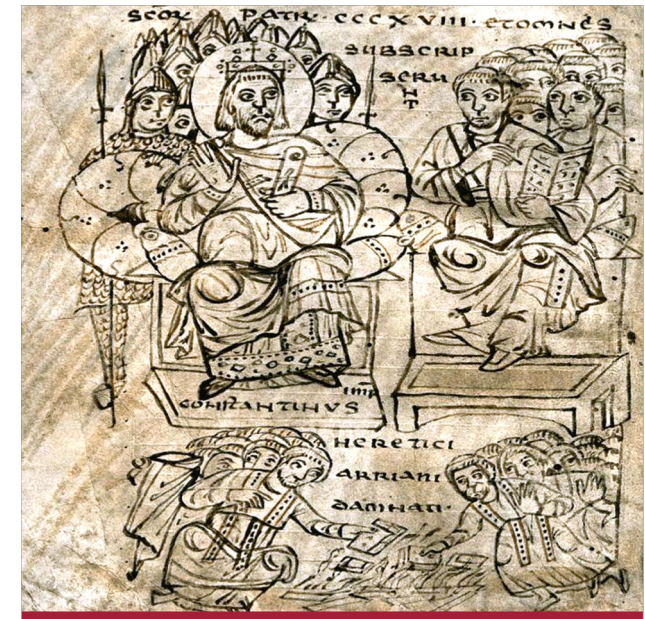 SCOR PATR · CCC X VIII · ET OMNES
SUBSCRIP
SERU
NT
IMP
CONSTANTINUS
HERETICI
ARRIANI
DAMNATI ·